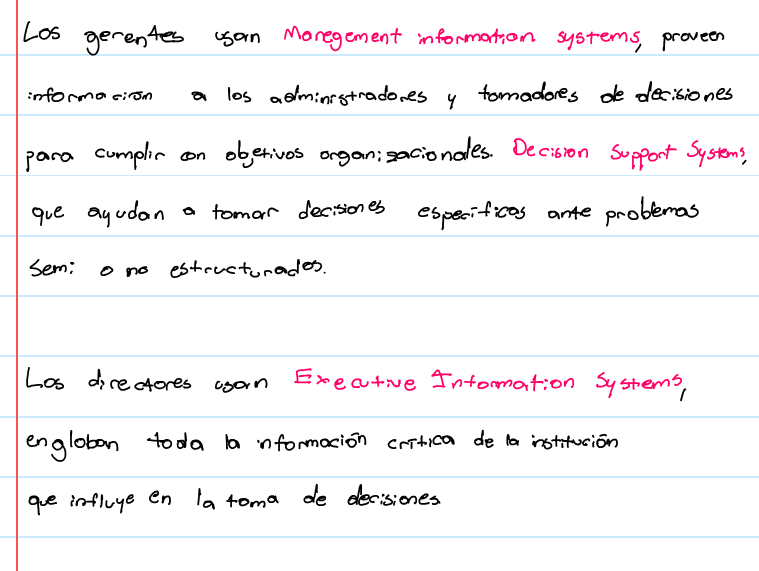 Los gerentes usan Management information systems, proveen
información a los administradores y tomadores de decisiones
para cumplir con objetivos organizacionales. Decision Support Systems,
que ayudan a tomar decisiones específicas ante problemas
semi o no estructurados.
Los directores usan Executive Information Systems,
engloban toda la información crítica de la institución
que influye en la toma de decisiones